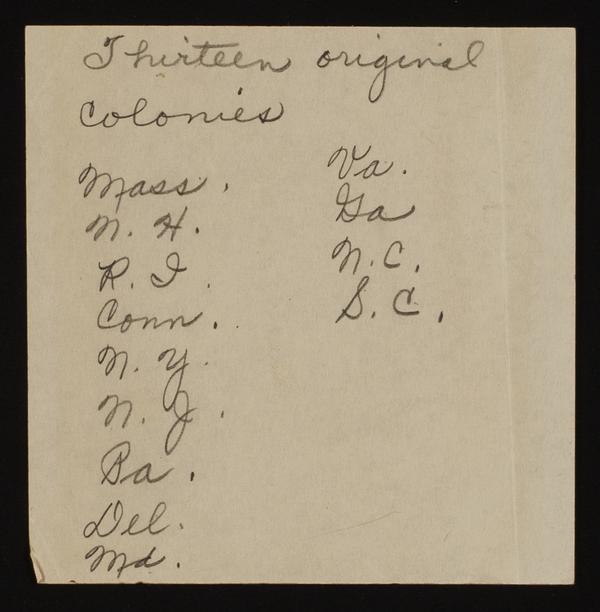 Thirteen original
colonies
Mass.
N. H.
R. I.
Conn.
N. Y.
N. J.
Pa.
Del.
Md.
Va.
Ga
N. C.
S. C.